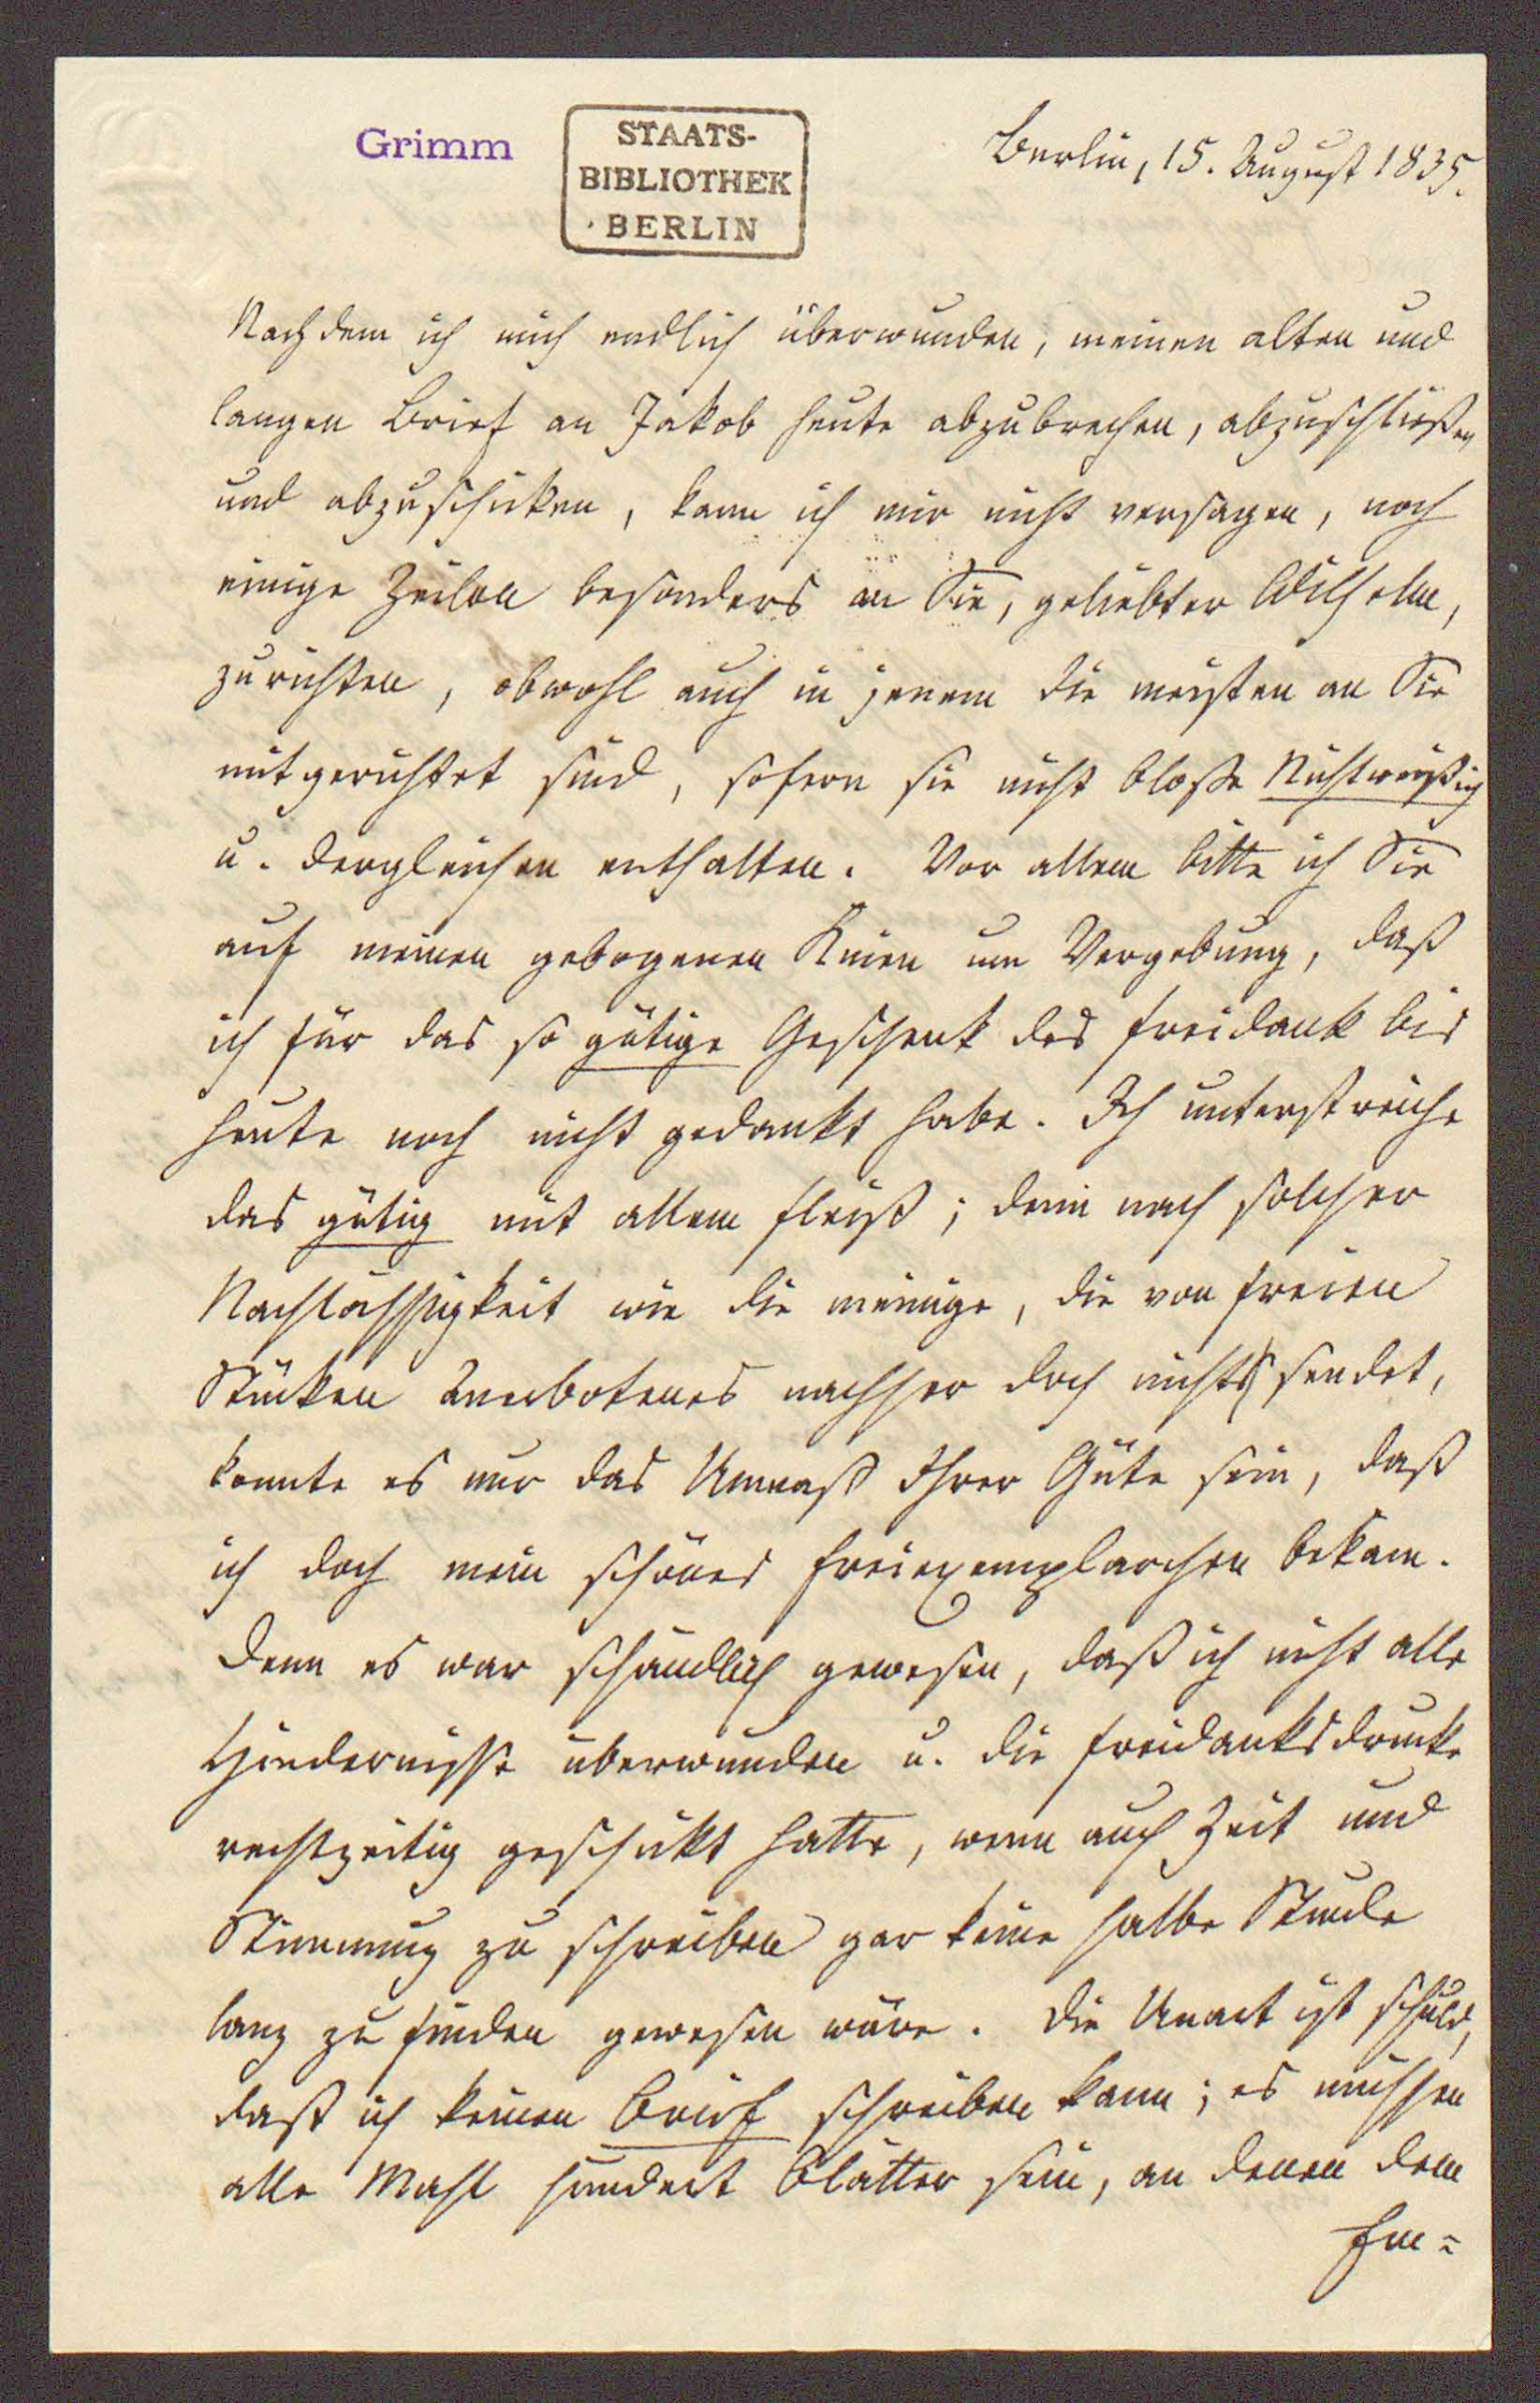 Grimm
STAATS-
BIBLIOTHEK
BERLIN
Berlin, 15. August 1835.
Nachdem ich mich endlich überwunden, meinen alten und
langen Brief an Jakob heute abzubrechen, abzuschließen
und abzuschicken, kann ich mir nicht versagen, noch
einige Zeilen besonders an Sie, geliebter Wilhelm,
zu richten, obwohl auch in jenem die meisten an Sie
mitgerichtet sind, sofern sie nicht bloße Nichtweißich
u. dergleichen enthalten. Vor allem bitte ich Sie
auf meinen gebogenen Knien um Vergebung, daß
ich für das so gütige Geschenk des Freidank bis
heute noch nicht gedankt habe. Ich unterstreiche
das gütig mit allem Fleiß; denn nach solcher
Nachlässigkeit wie die meinige, die von freien
Stücken Anerbotenes nachher doch nicht sendet,
konnte es nur das Unmaß Ihrer Güte sein, daß
ich doch mein schönes Freiexemplarchen bekam.
Denn es war schändlich gewesen, daß ich nicht alle
Hindernisse überwunden u. die Freidanksdrucke
rechtzeitig geschickt hatte, wenn auch Zeit und
Stimmung zu schreiben gar keine halbe Stunde
lang zu finden gewesen wäre. Die Unart ist schuld,
daß ich keinen Brief schreiben kann; es müssen
alle Mahl hundert Blätter sein, an denen dem
Em=